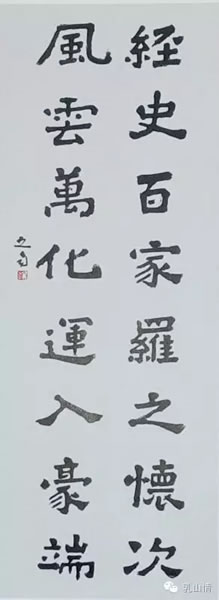 經史百家羅之懷次
風雲萬化運入豪端
乳山情